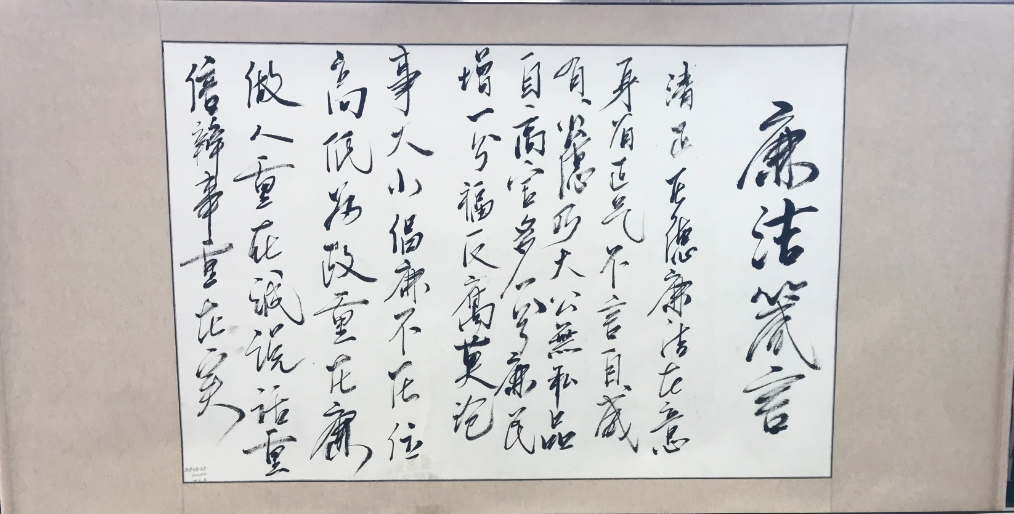 廉洁箴言
清正在德廉洁在意
身有正气不言自威
有公德乃大公無私品
自高官多一分廉民
增一分福反腐莫论
事大小倡廉不在位
高低为政重在廉
做人重在诚说话重
信辦事重在实